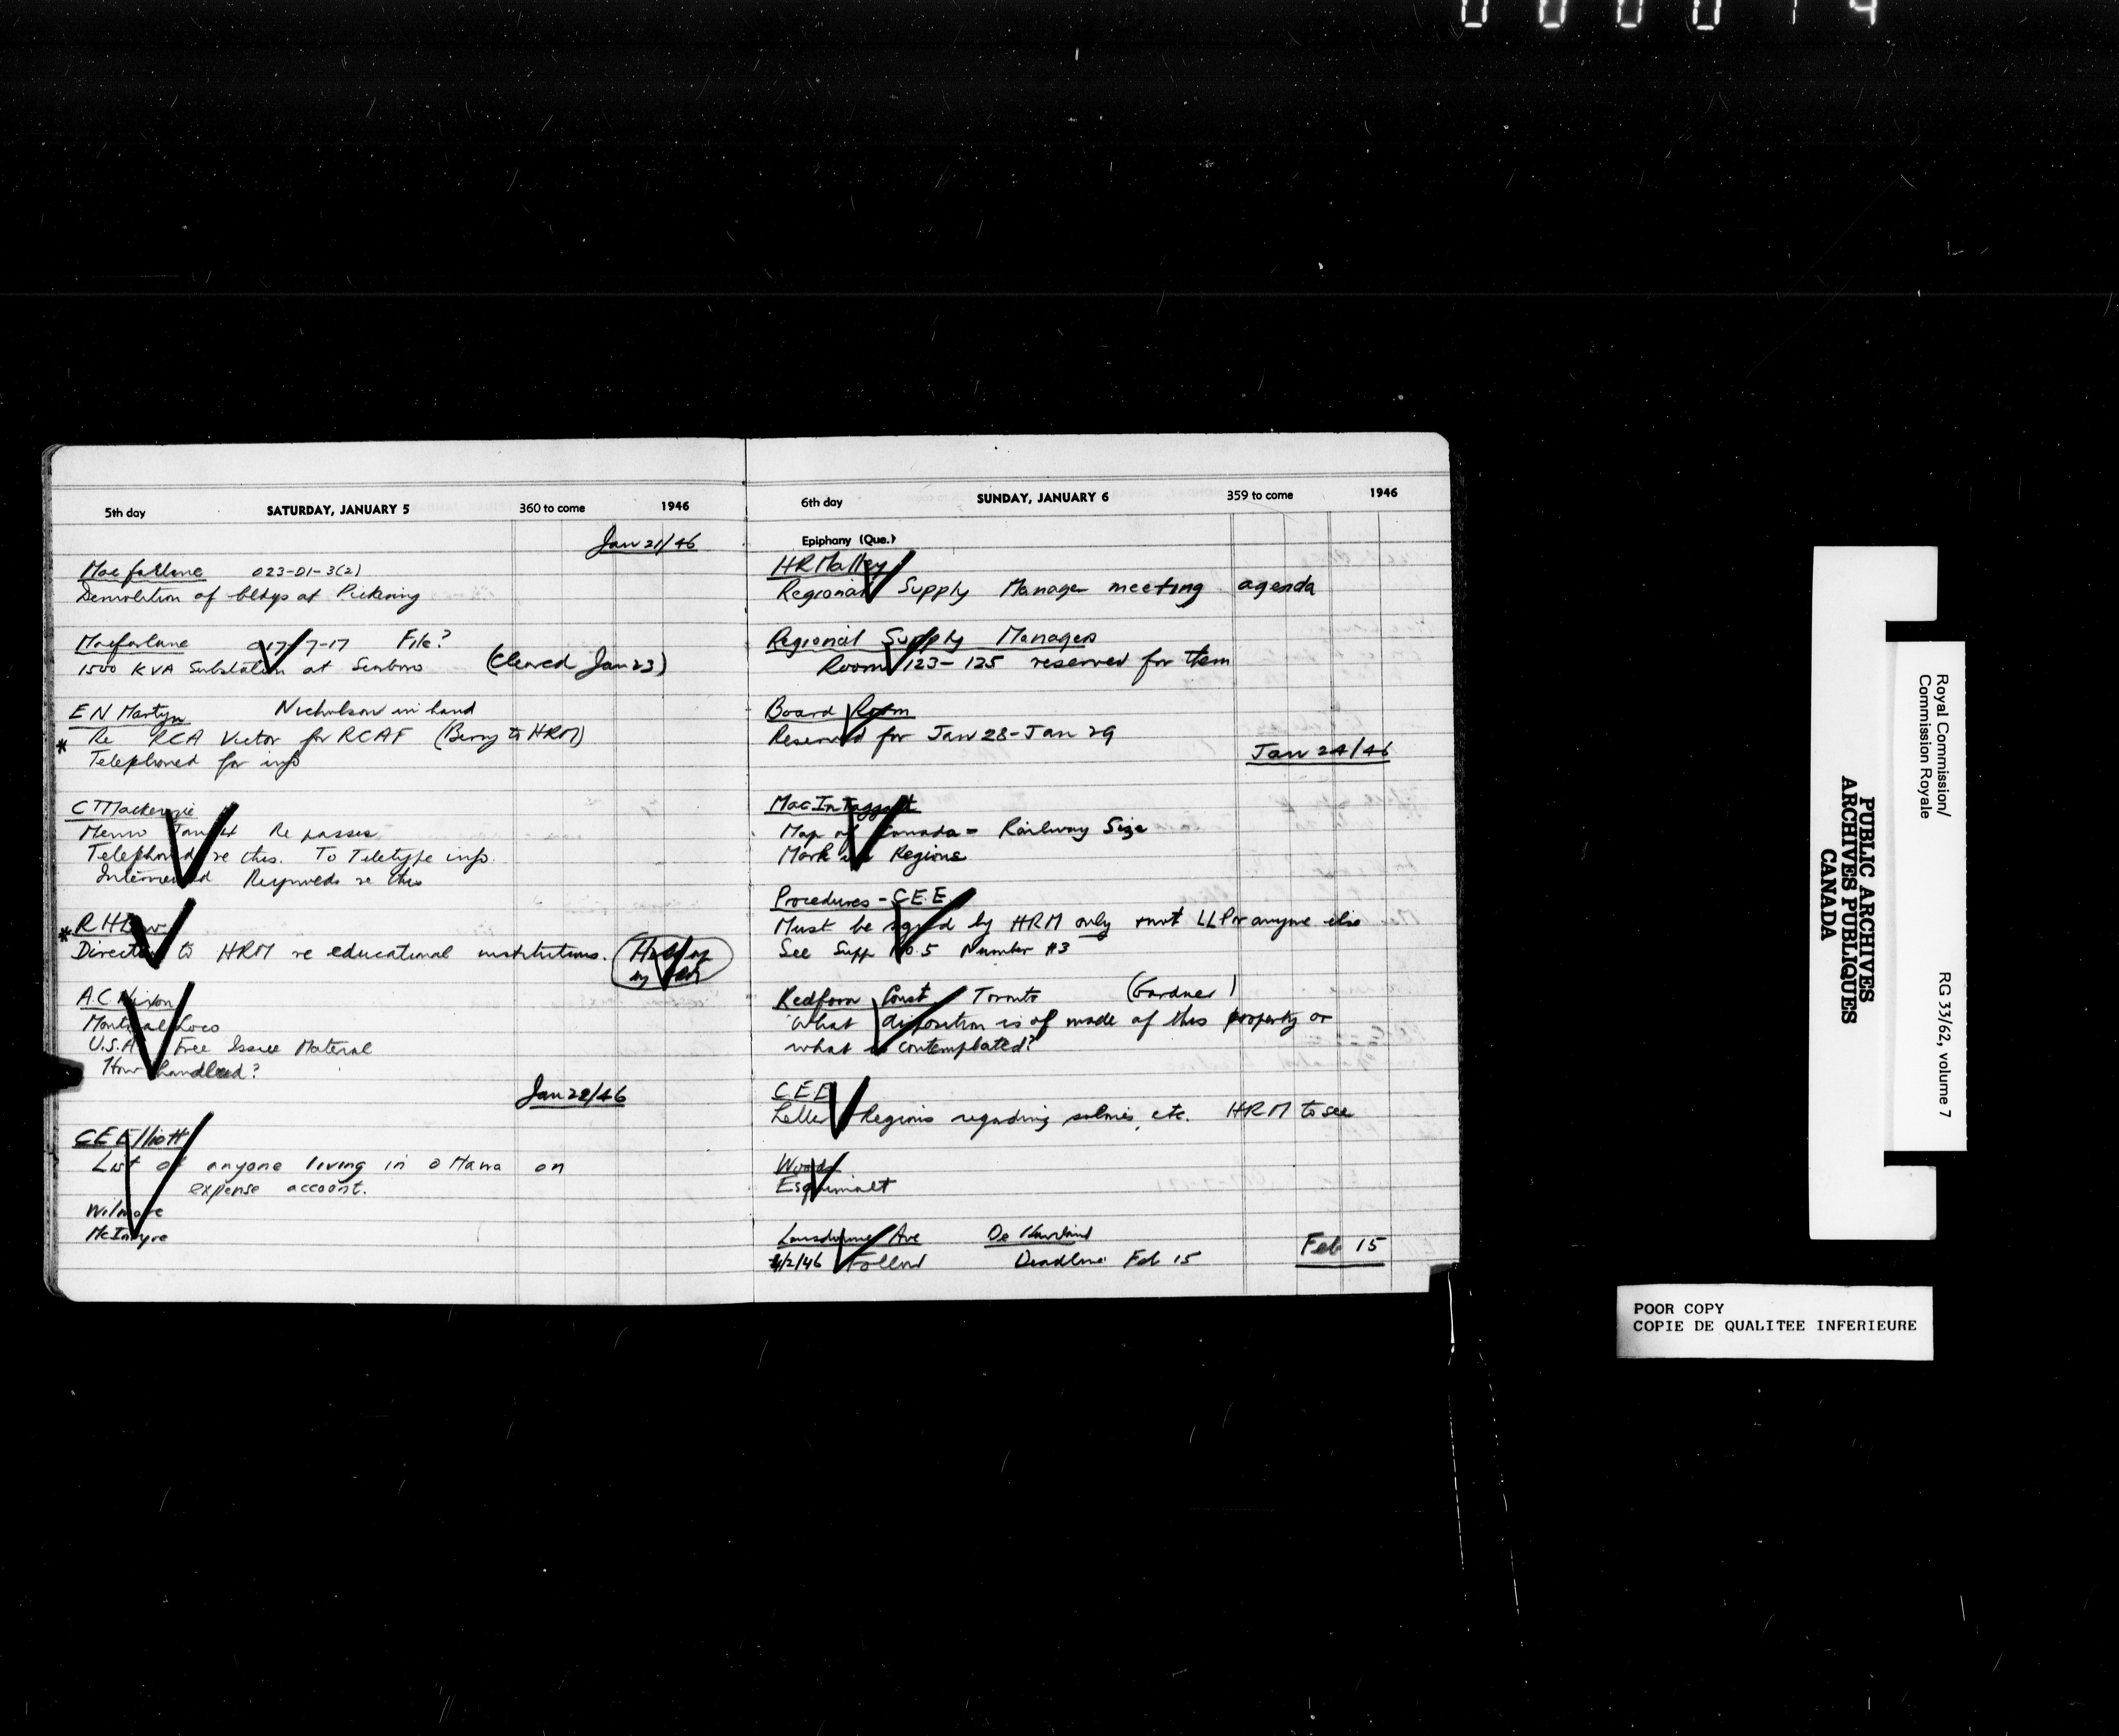 000014
5th day SATURDAY, JANUARY 5 360 to come 1946
Jan 21/46
Macfarlane 023-01-3(2)
Demolition of bldgs at Pickering
Macfarlane 7-17 File?
1500 KVA Substation at Scarboro (Cleared Jan 23)
E N Martyn Nicholson in hand
* Re RCA Victor for RCAF (Berry to HRM)
Telephoned for info
C T Mackenzie
Memo Jan Re passes
Telephoned re this. To Teletype info.
Interviewed Reynolds re this
* R H
Director to HRM re educational institutions. Held up
by
A.C. Nixon
Montreal Loco
U.S.A. Free Issue Material
How handled?
Jan 22/46
C E Elliott
List of anyone living in Ottawa on
expense account.
Wilmore
McIntyre
6th day SUNDAY, JANUARY 6 359 to come 1946
Epiphany (Que.)
HR Malley
Regional Supply Manager meeting agenda
Regional Supply Managers
Room 123-125 reserved for them
Board Room
Reserved for Jan 28-Jan 29
Jan 24/46
MacIntaggart
Map of Canada - Railway Size
Mark in Regions
Procedures - C.E.E.
Must be signed by HRM only not LLP or anyone else
See Supp No. 5 Number #3
Redfern Const Toronto (Gardner)
What disposition is of made of this property or
what is contemplated?
C E E
Letter Regions regarding salaries, etc. HRM to see
Woods
Esquimalt
Lansdowne Ave De Haviland
4/2/46 Follow Deadline Feb 15 Feb 15
Royal Commission/
Commission Royale
RG 33/62, volume 7
PUBLIC ARCHIVES
ARCHIVES PUBLIQUES
CANADA
POOR COPY
COPIE DE QUALITEE INFERIEURE